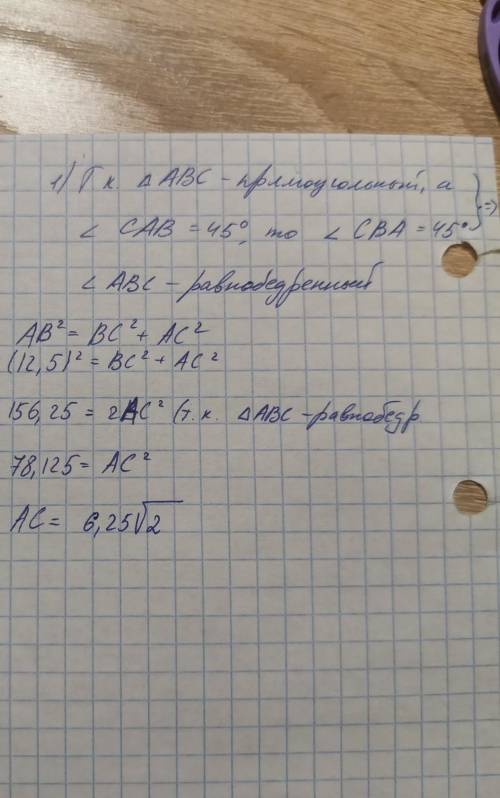 1) Т к. △ABC - прямоугольный, а
∠ CAB = 45°, то ∠ CBA = 45° } =>
∠ ABC - равнобедренный
AB² = BC² + AC²
(12,5)² = BC² + AC²
156,25 = 2AC² (т.к. △ABC - равнобедр
78,125 = AC²
AC = 6,25√2